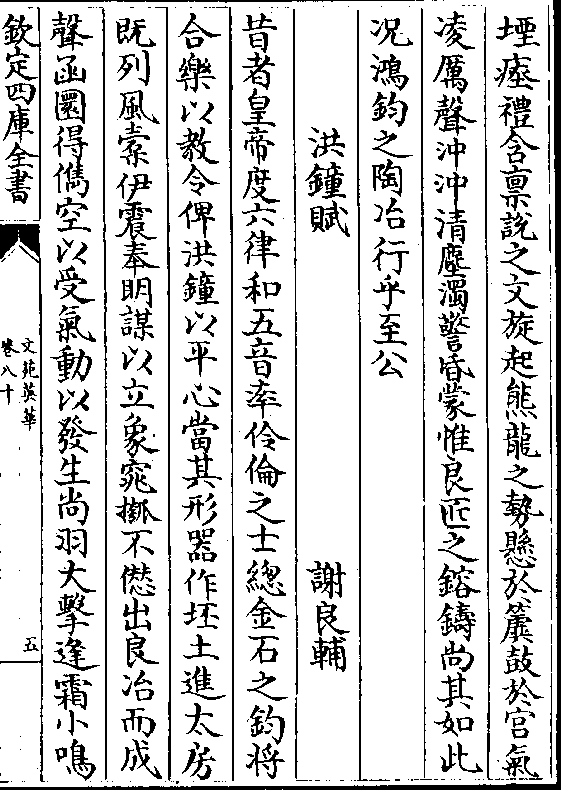 堙瘞禮含稟說之文旋起熊龍之勢懸於簴鼓於宮氣
凌厲聲沖沖清塵濁警昏蒙惟良匠之鎔鑄尚其如此
况鴻鈞之陶冶行乎至公
洪鐘賦 謝良輔
昔者皇帝度六律和五音率伶倫之士總金石之鈞將
合樂以教令俾洪鐘以平心當其形器作坯土進太房
既列風橐伊震奉明謀以立象窕摦不僽出良冶而成
聲函圜得儁空以受氣動以發生尚羽大擊逢霜小鳴
欽定四庫全書
文苑英華
卷八十
五